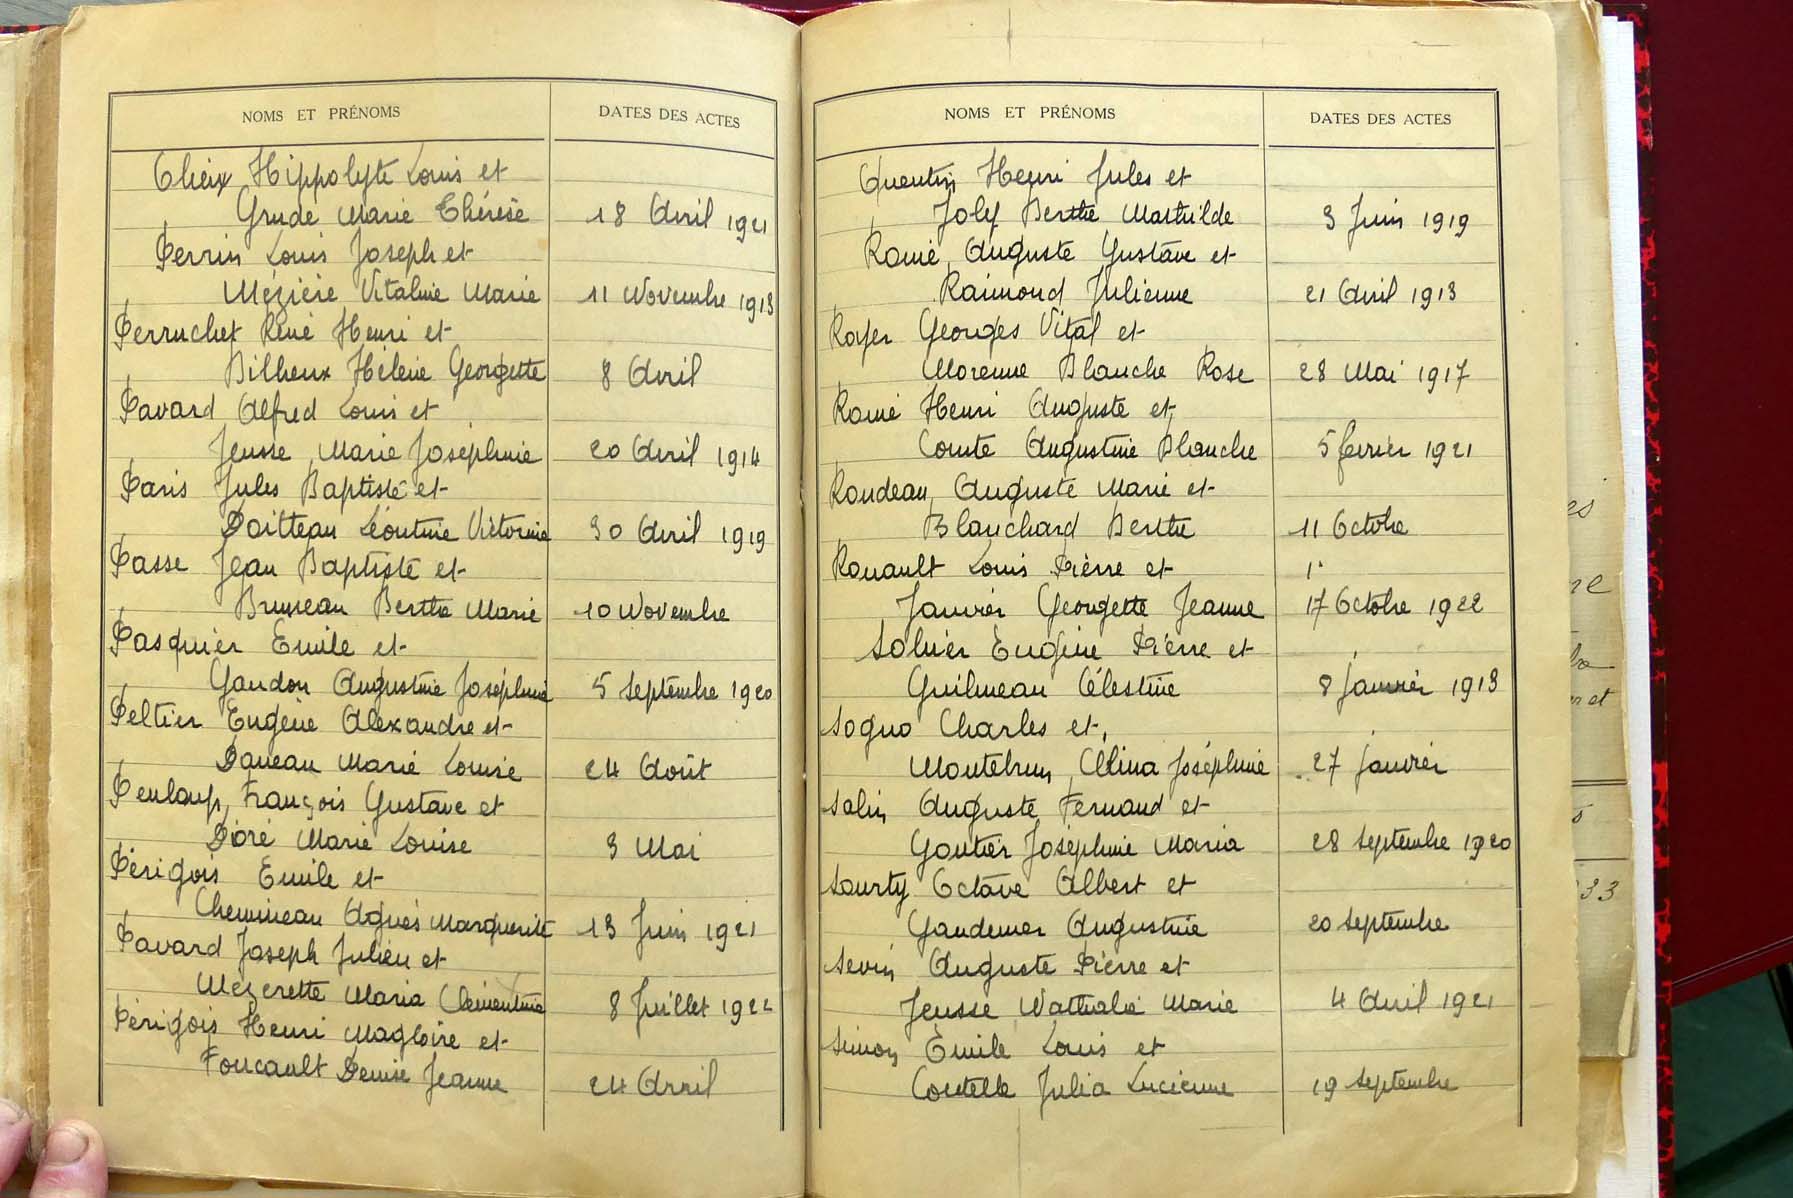 NOMS ET PRÉNOMS
DATES DES ACTES
Hippolyte Louis et
Grude Marie Thérèse 18 Avril 1921
Perrin Louis Joseph et
Mézière Vitaline Marie 11 Novembre 1913
Perruchet René Henri et
Bilheux Hélène Georgette 8 Avril
Pavard Alfred Louis et
Jeusse Marie Joséphine 20 Avril 1914
Paris Jules Baptiste et
Doitteau Léontine Victorine 30 Avril 1919
Passe Jean Baptiste et
Bruneau Berthe Marie 10 Novembre
Pasquier Emile et
Gandon Augustine Joséphine 5 Septembre 1920
Peltier Eugène Alexandre et
Daneau Marie Louise 24 Août
Penloup François Gustave et
Doré Marie Louise 3 Mai
Périgois Emile et
Chemineau Agnès Marguerite 13 Juin 1921
Pavard Joseph Julien et
Mézerette Maria Clémentine 8 Juillet 1922
Périgois Henri Magloire et
Foucault Denise Jeanne 24 Avril
NOMS ET PRÉNOMS
DATES DES ACTES
Quentin Henri Jules et
Joly Berthe Mathilde 3 Juin 1919
Romé Auguste Gustave et
Raimond Julienne 21 Avril 1913
Royer Georges Vital et
Morenne Blanche Rose 28 Mai 1917
Romé Henri Auguste et
Comte Augustine Blanche 5 février 1921
Rondeau Auguste Marie et
Blanchard Berthe 11 Octobre
Rouault Louis Pierre et 1
Janvier Georgette Jeanne 17 Octobre 1922
Solnier Eugène Pierre et
Guilmeau Célestine 8 janvier 1913
Sogno Charles et
Montebrun Célina Joséphine 27 janvier
Salin Auguste Fernand et
Goutier Joséphine Maria 28 septembre 1920
Sourty Octave Albert et
Gandemer Augustine 20 septembre
Sevin Auguste Pierre et
Jeusse Nathalie Marie 4 Avril 1921
Simon Emile Louis et
Coutelle Julia Lucienne 19 septembre